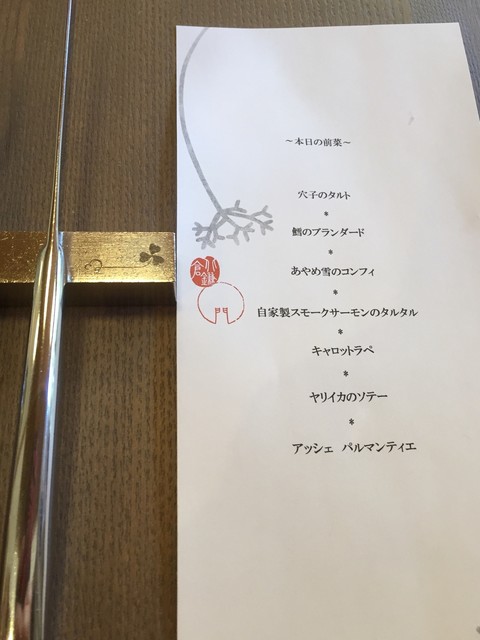 ～本日の前菜～
穴子のタルト
*
鱈のブランダード
*
あやめ雪のコンフィ
*
自家製スモークサーモンのタルタル
*
キャロットラペ
*
ヤリイカのソテー
*
アッシェ パルマンティエ
門